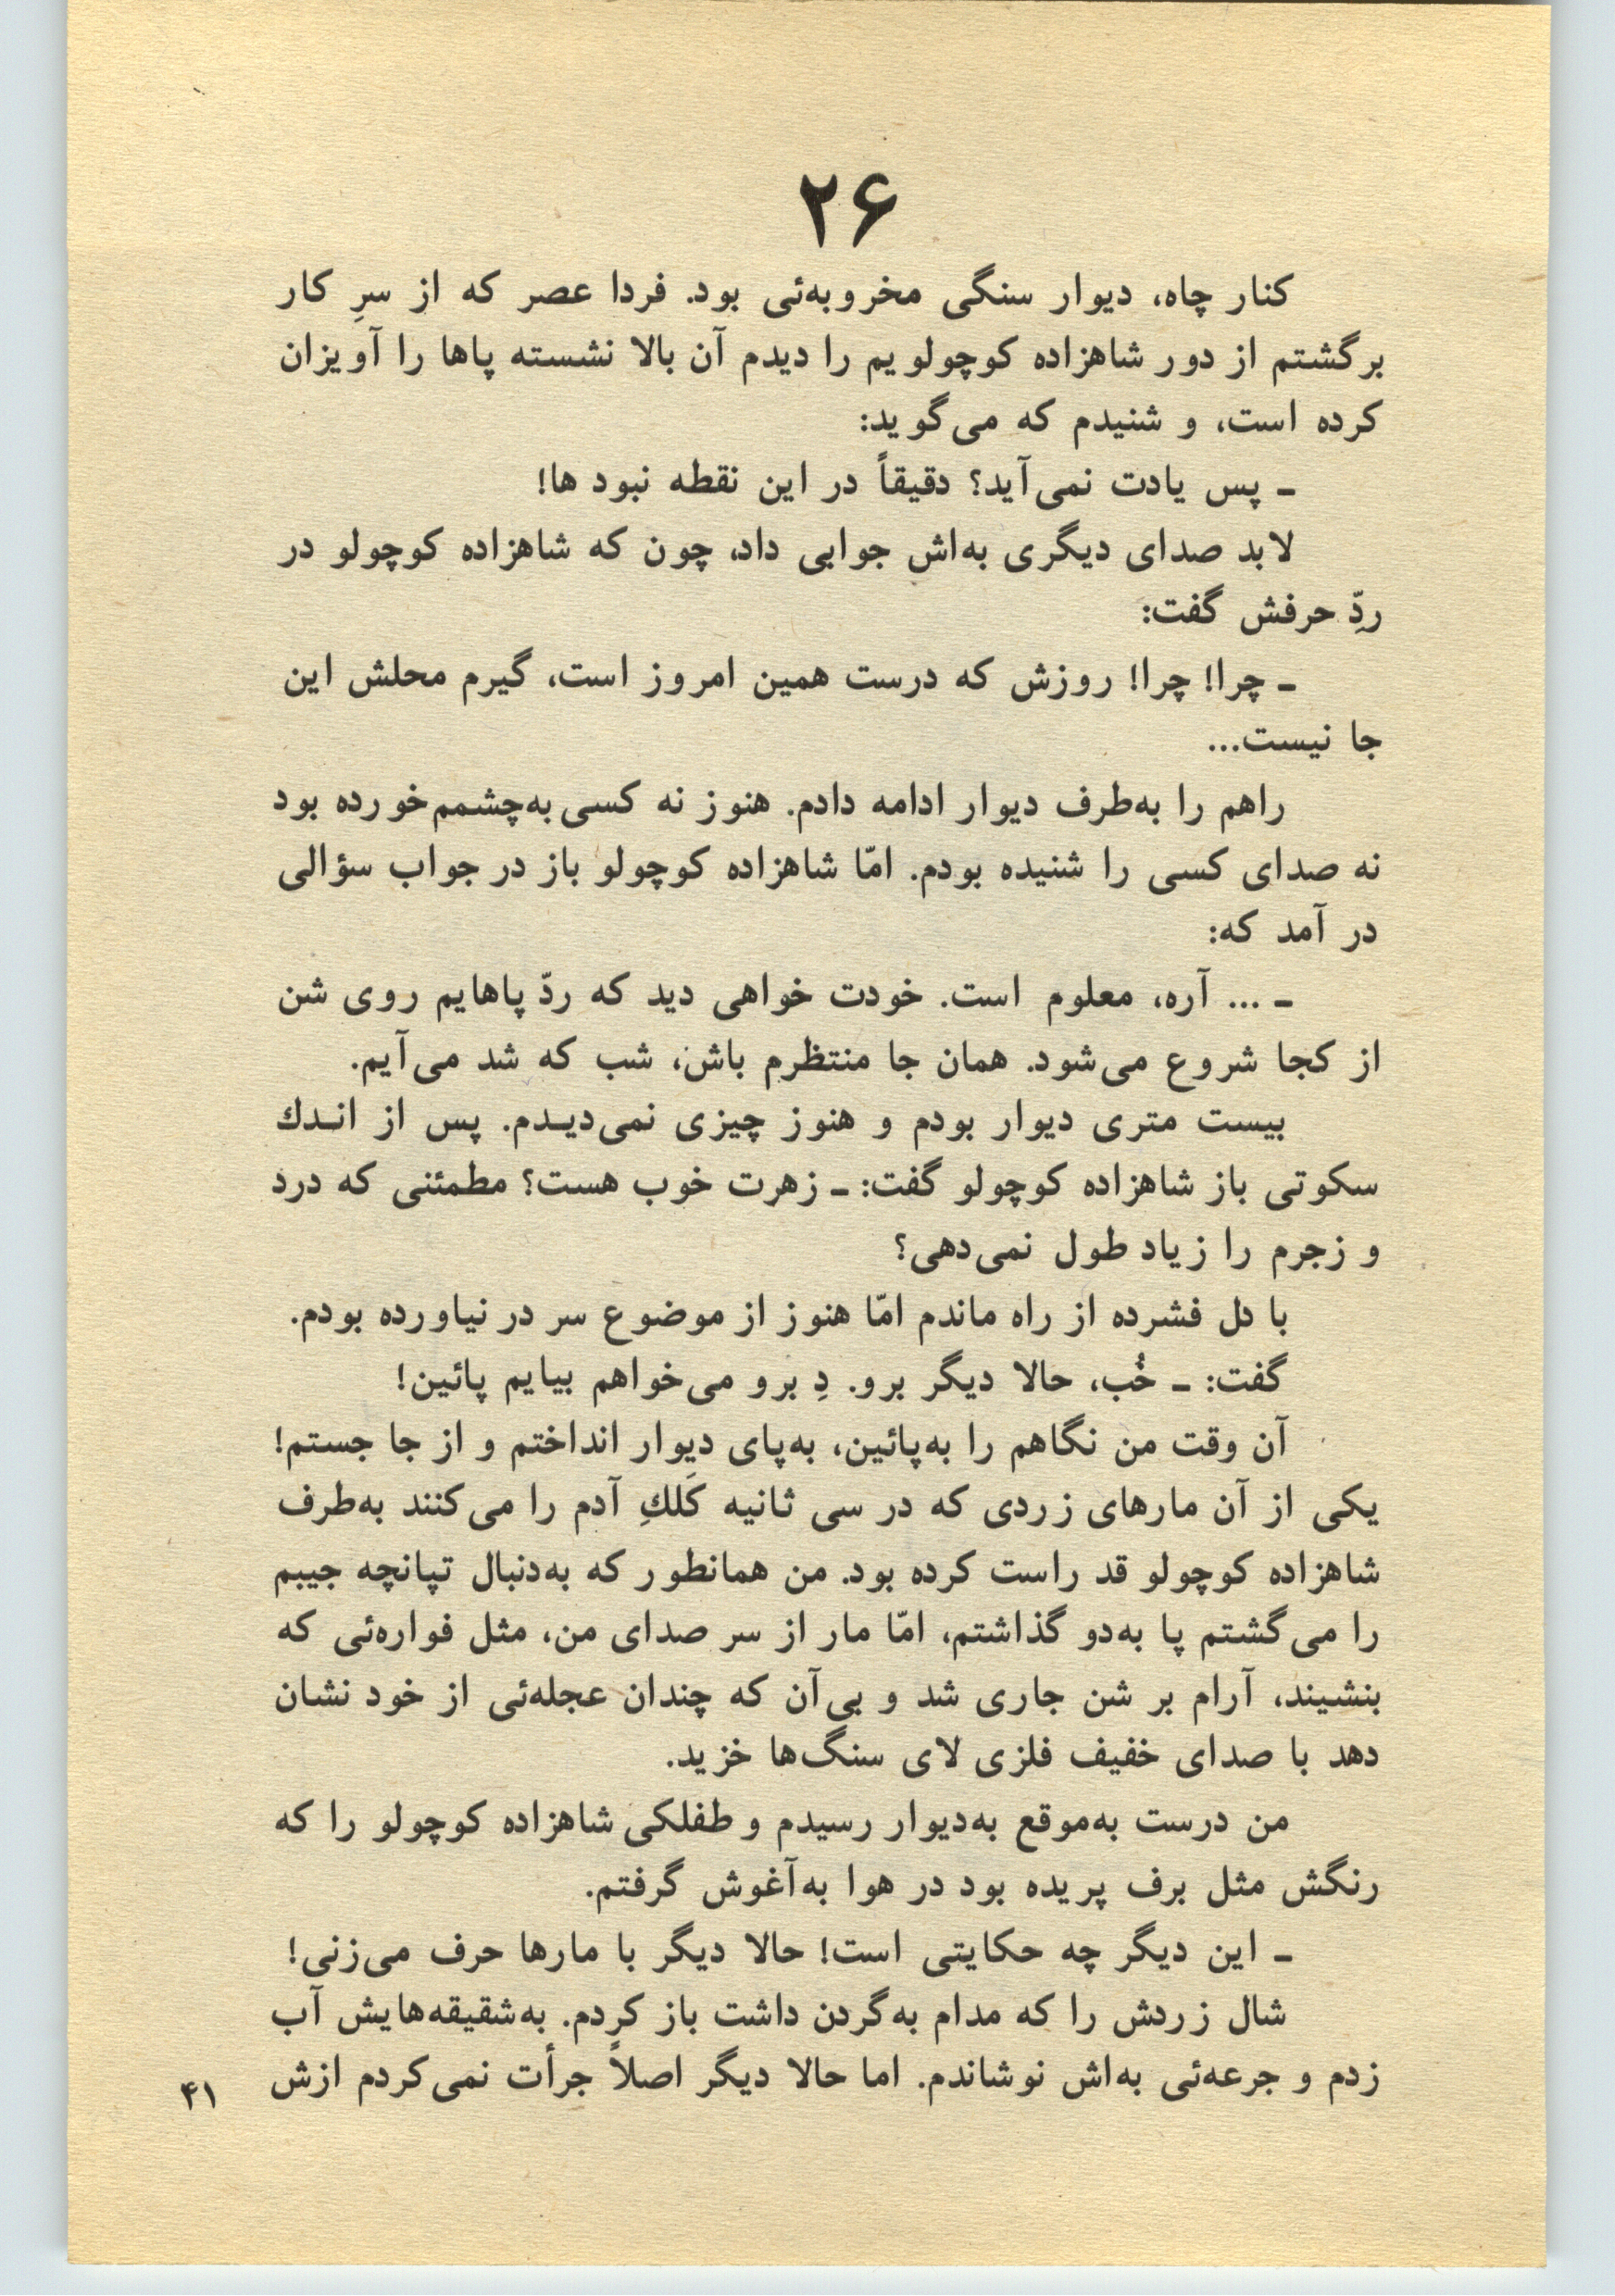 ۲۶
کنار چاه، دیوار سنگی مخروبه‌ئی بود. فردا عصر که از سرِ کار
برگشتم از دور شاهزاده کوچولویم را دیدم آن بالا نشسته پاها را آویزان
کرده است، و شنیدم که می‌گوید:
ـ پس یادت نمی‌آید؟ دقیقاً در این نقطه نبود ها!
لابد صدای دیگری به‌اش جوابی داد، چون که شاهزاده کوچولو در
ردِّ حرفش گفت:
ـ چرا! چرا! روزش که درست همین امروز است، گیرم محلش این
جا نیست...
راهم را به‌طرف دیوار ادامه دادم. هنوز نه کسی به‌چشمم‌خورده بود
نه صدای کسی را شنیده بودم. امّا شاهزاده کوچولو باز در جواب سؤالی
در آمد که:
ـ ... آره، معلوم است. خودت خواهی دید که ردّ پاهایم روی شن
از کجا شروع می‌شود. همان جا منتظرم باش، شب که شد می‌آیم.
بیست متری دیوار بودم و هنوز چیزی نمی‌دیـدم. پس از انـدك
سکوتی باز شاهزاده کوچولو گفت: ـ زهرت خوب هست؟ مطمئنی که درد
و زجرم را زیاد طول نمی‌دهی؟
با دل فشرده از راه ماندم امّا هنوز از موضوع سر در نیاورده بودم.
گفت: ـ خُب، حالا دیگر برو. دِ برو می‌خواهم بیایم پائین!
آن وقت من نگاهم را به‌پائین، به‌پای دیوار انداختم و از جا جستم!
یکی از آن مارهای زردی که در سی ثانیه کَلكِ آدم را می‌کنند به‌طرف
شاهزاده کوچولو قد راست کرده بود. من همانطور که به‌دنبال تپانچه جیبم
را می‌گشتم پا به‌دو گذاشتم، امّا مار از سر صدای من، مثل فواره‌ئی که
بنشیند، آرام بر شن جاری شد و بی‌آن که چندان عجله‌ئی از خود نشان
دهد با صدای خفیف فلزی لای سنگ‌ها خزید.
من درست به‌موقع به‌دیوار رسیدم و طفلکی شاهزاده کوچولو را که
رنگش مثل برف پریده بود در هوا به‌آغوش گرفتم.
ـ این دیگر چه حکایتی است! حالا دیگر با مارها حرف می‌زنی!
شال زردش را که مدام به‌گردن داشت باز کردم. به‌شقیقه‌هایش آب
زدم و جرعه‌ئی به‌اش نوشاندم. اما حالا دیگر اصلاً جرأت نمی‌کردم ازش
۴۱